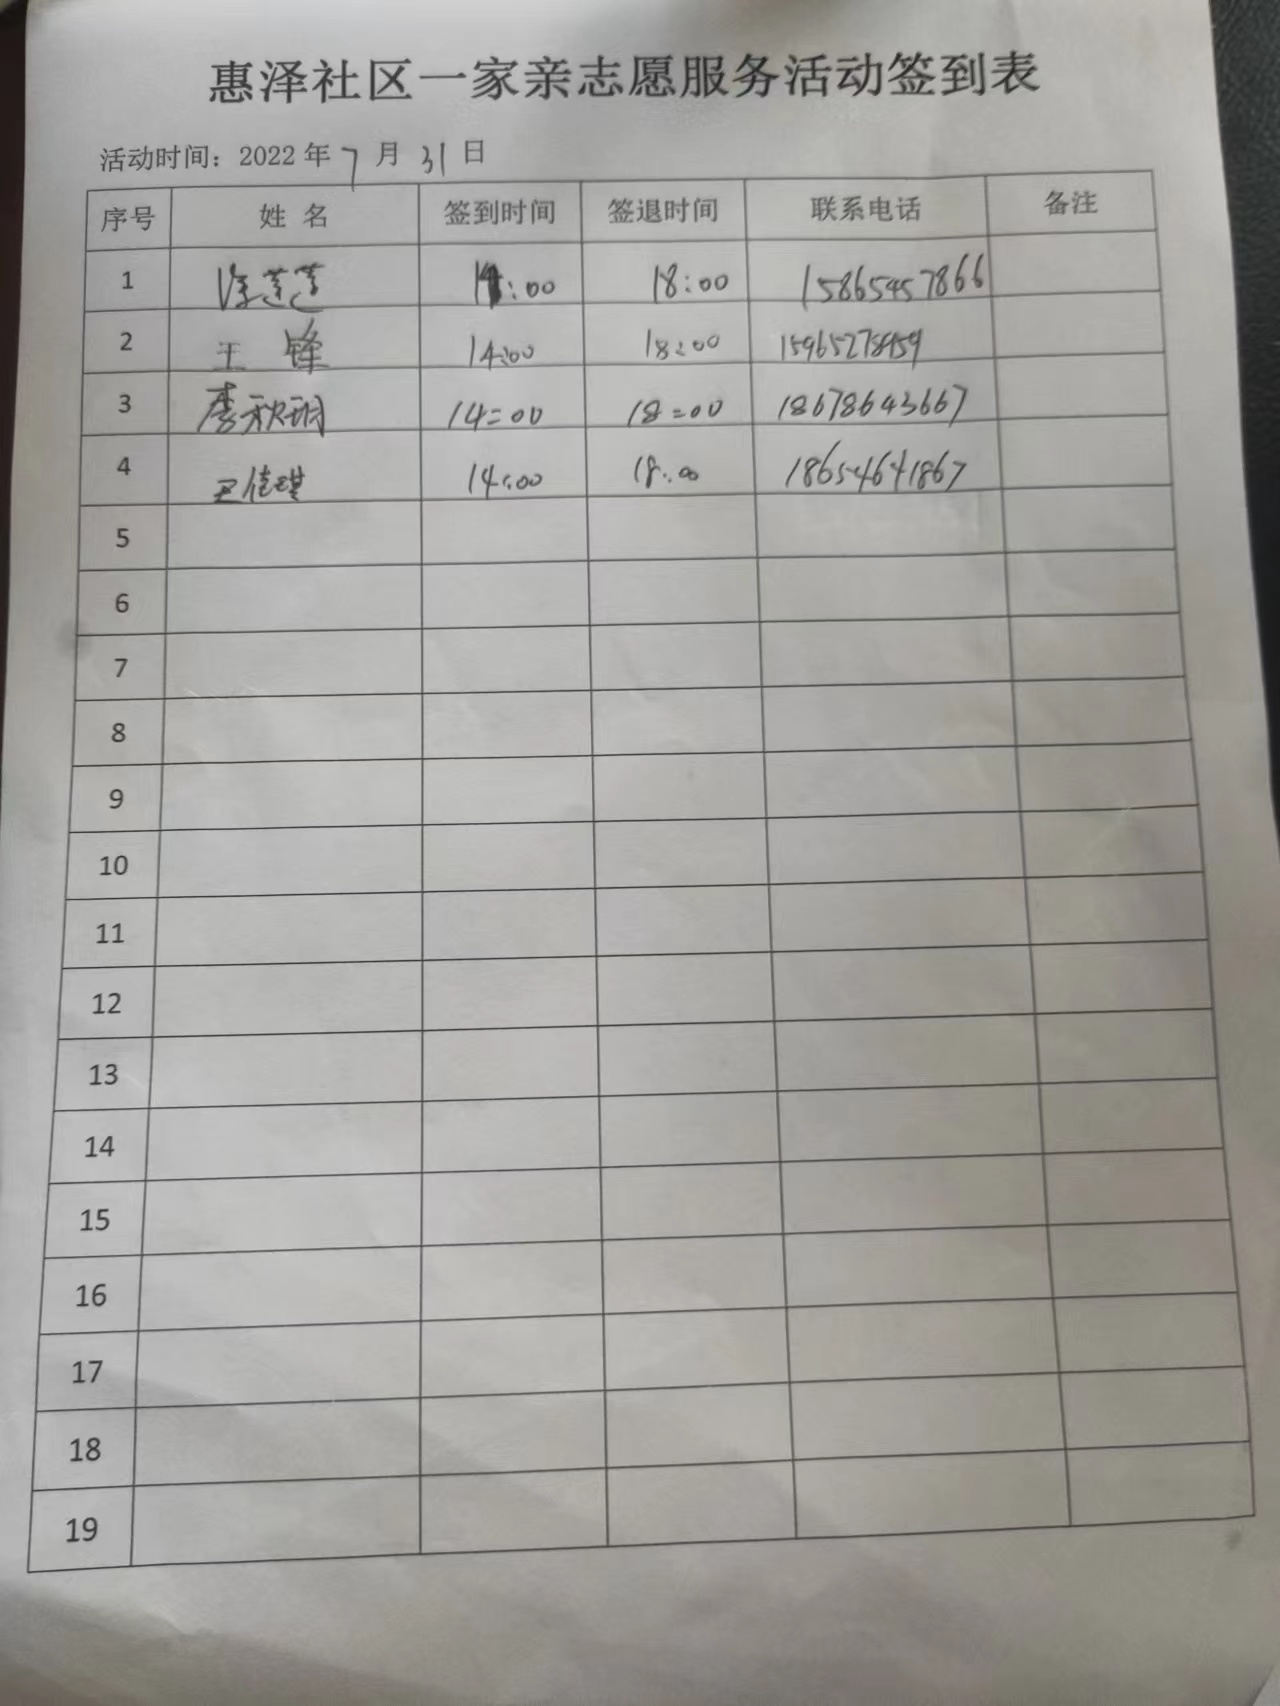 惠泽社区一家亲志愿服务活动签到表
活动时间：2022 年 7 月 31 日
序号 姓 名 签到时间 签退时间 联系电话 备注
1 14:00 18:00 15865457866
2 王 锋 14:00 18:00 15965278459
3 李秋玥 14:00 18:00 18678643667
4 王佳琪 14:00 18:00 18654641867
5
6
7
8
9
10
11
12
13
14
15
16
17
18
19